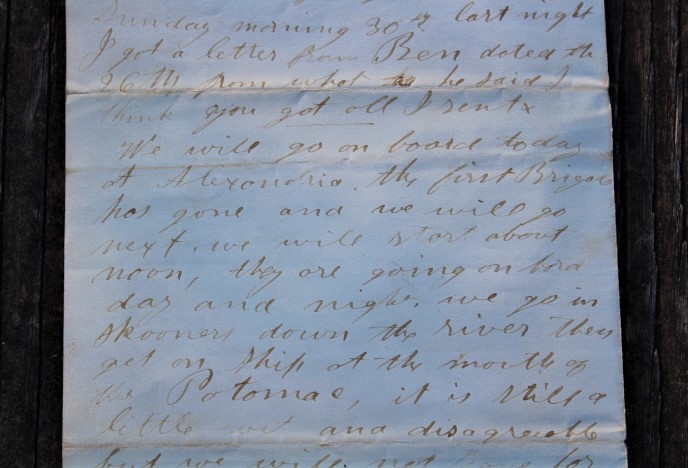 Sunday morning 30th last night
I got a letter from Ben dated th
26th from what he said I
think you got all I sent
We will go on board today
at Alexandria. the first Brigade
has gone and we will go
next. we will start about
noon, they are going on bord
day and night. we go in
skooners down the river then
get on ship at the mouth of
the Potomac, it is still a
little wet and disagreeable
but we will not for